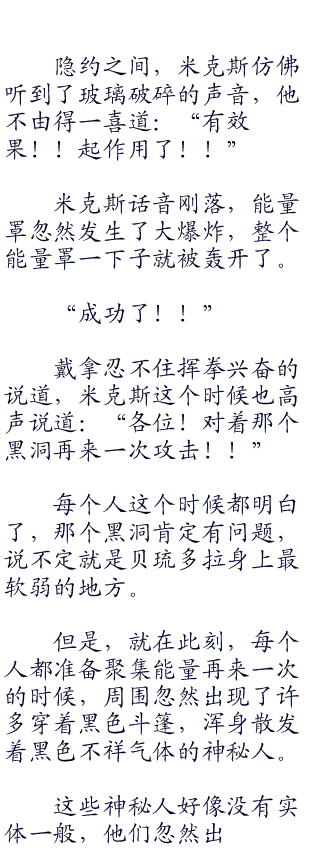 隐约之间，米克斯仿佛
听到了玻璃破碎的声音，他
不由得一喜道：“有效
果！！起作用了！！”
米克斯话音刚落，能量
罩忽然发生了大爆炸，整个
能量罩一下子就被轰开了。
“成功了！！”
戴拿忍不住挥拳兴奋的
说道，米克斯这个时候也高
声说道：“各位！对着那个
黑洞再来一次攻击！！”
每个人这个时候都明白
了，那个黑洞肯定有问题，
说不定就是贝琉多拉身上最
软弱的地方。
但是，就在此刻，每个
人都准备聚集能量再来一次
的时候，周围忽然出现了许
多穿着黑色斗篷，浑身散发
着黑色不祥气体的神秘人。
这些神秘人好像没有实
体一般，他们忽然出